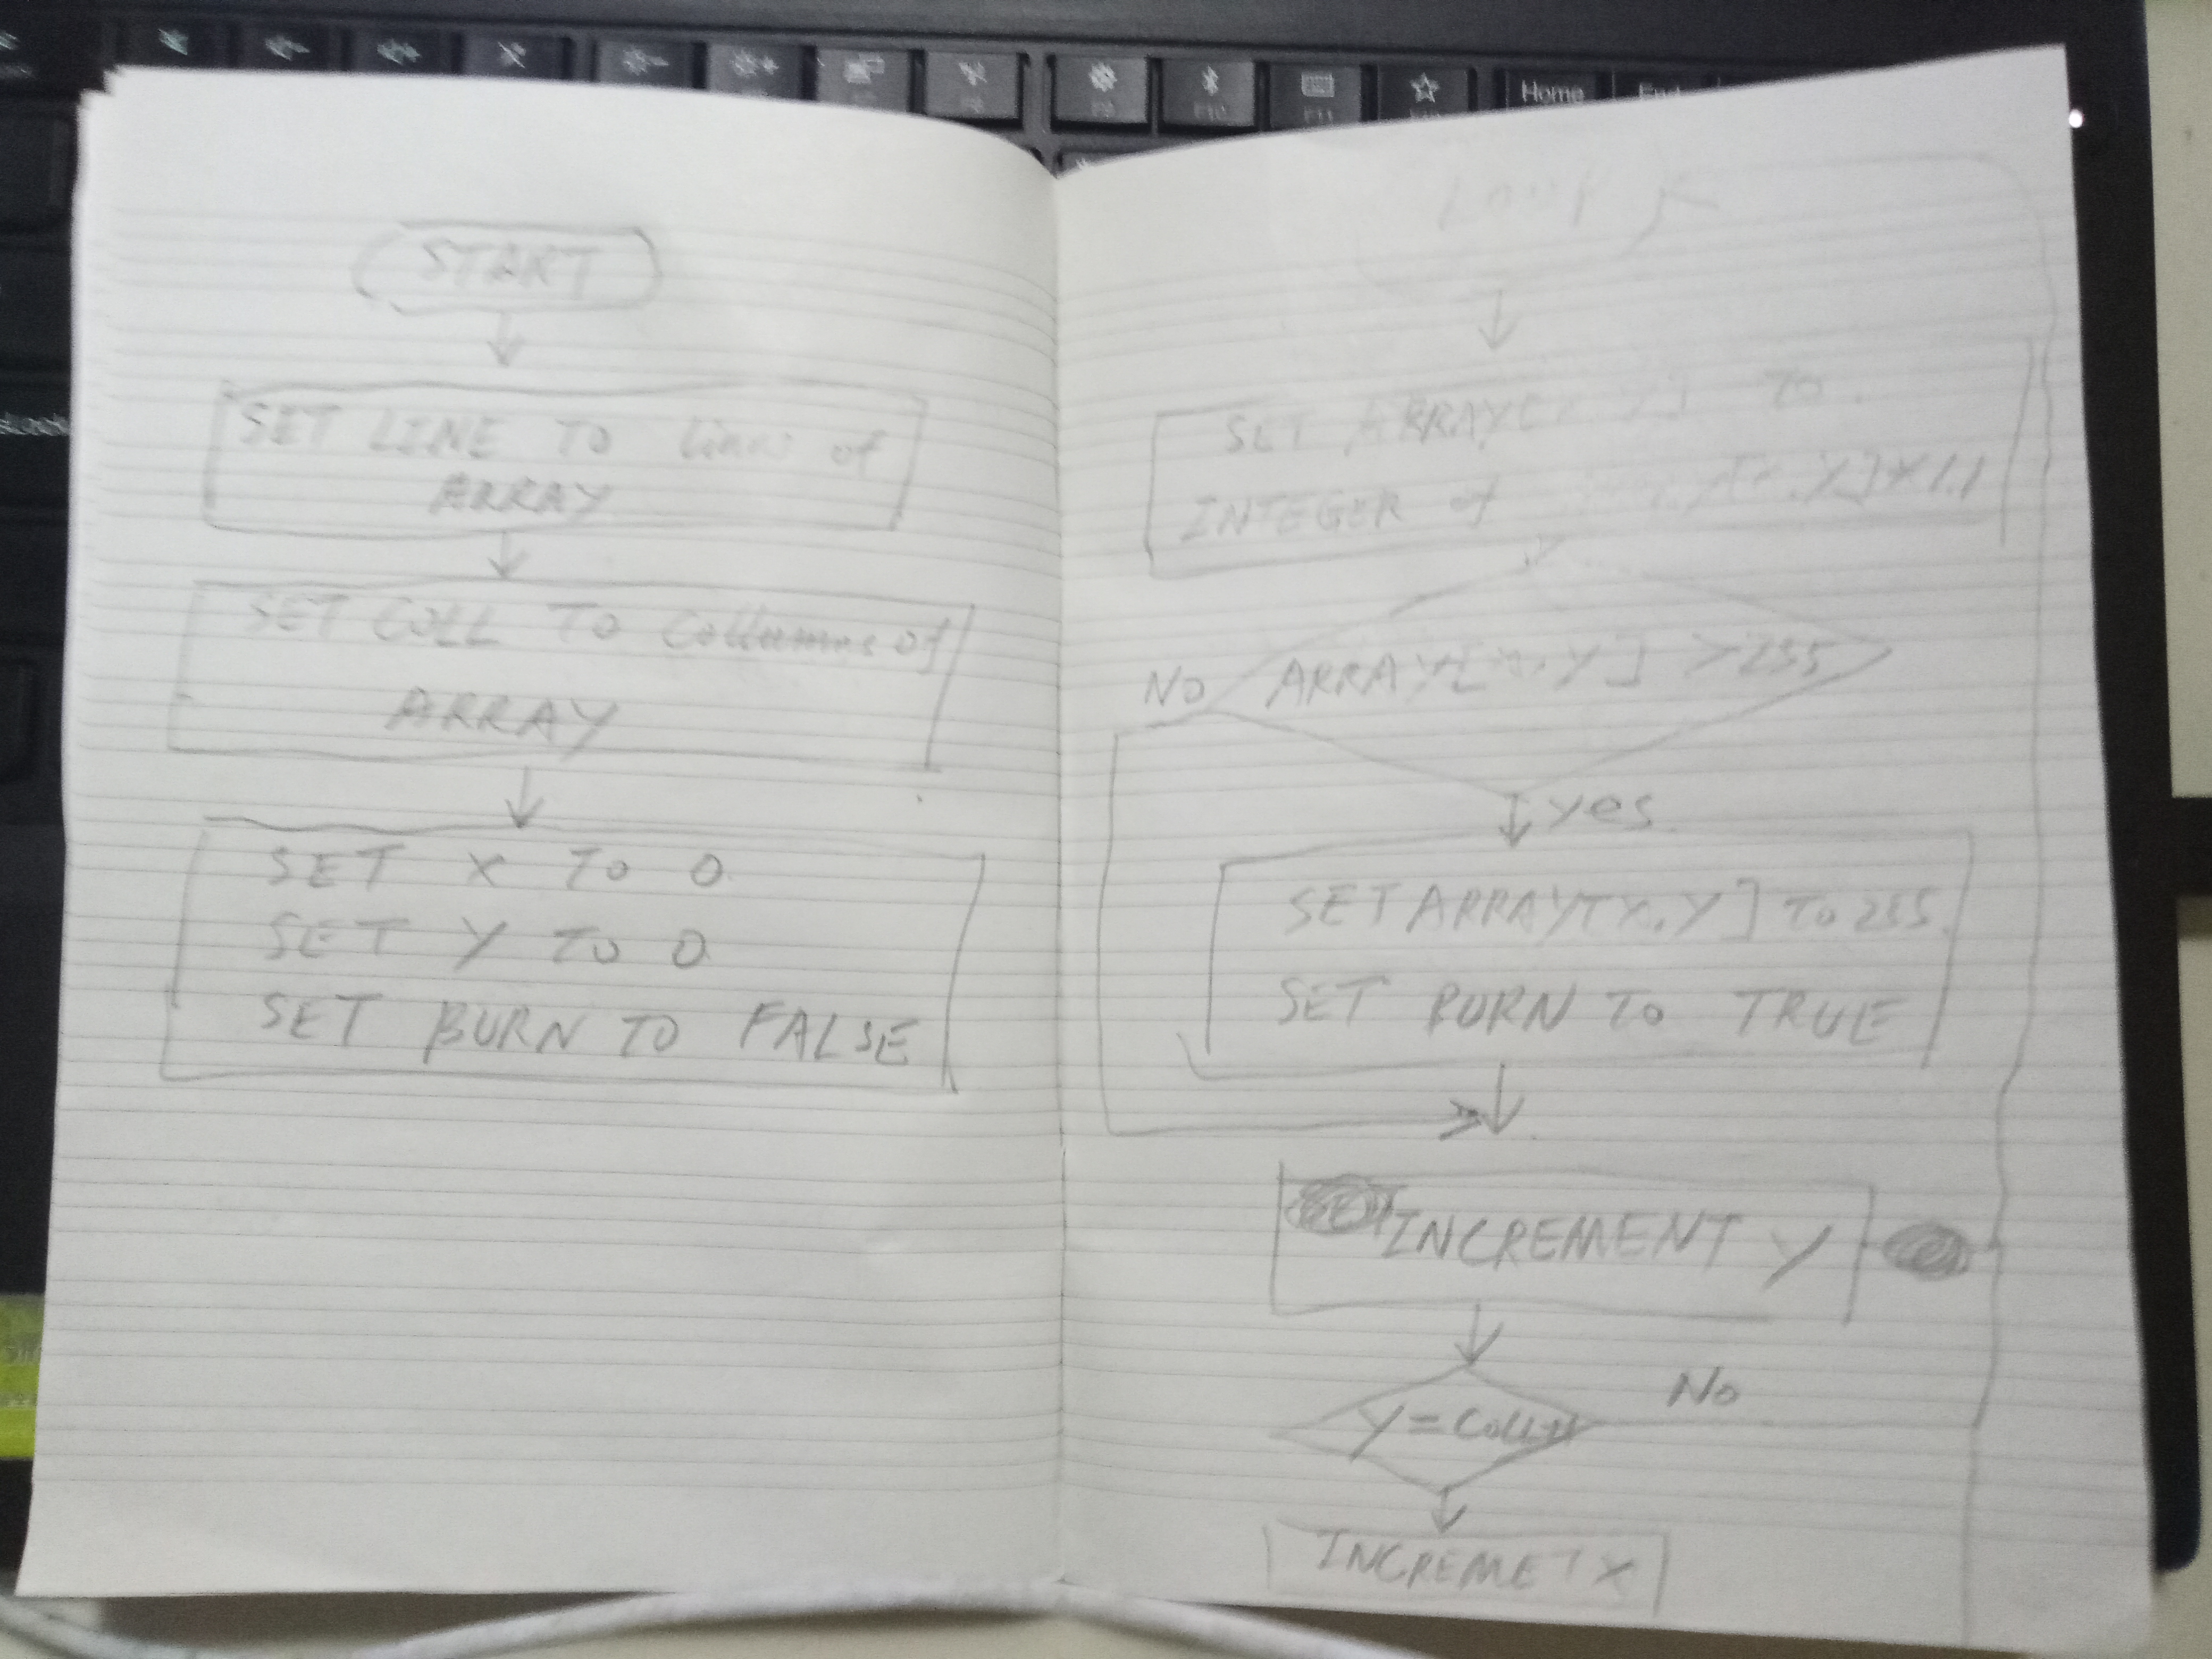 Home
START
SET LINE TO lines of
ARRAY
SET COLL TO Collumns of
ARRAY
SET X TO 0
SET Y TO 0
SET BURN TO FALSE
LOOP
SET ARRAY[ Y] TO
INTEGER of Y]*1.1
NO ARRAY[X,Y] >255
yes
SET ARRAY[X,Y] TO 255
SET BURN TO TRUE
INCREMENT Y
No
Y=
INCREMET X